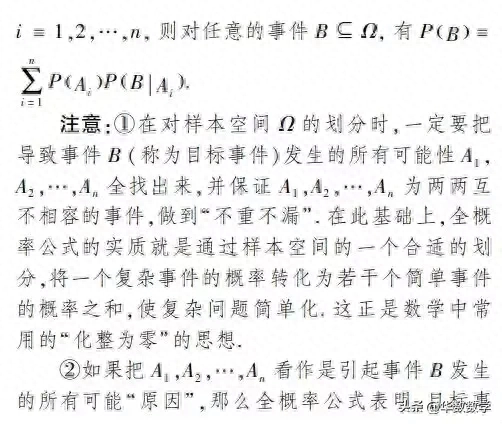 i = 1,2,⋯,n, 则对任意的事件 B ⊆ Ω, 有 P(B) =
∑ⁿᵢ₌₁ P(Aᵢ)P(B|Aᵢ).
注意:①在对样本空间 Ω 的划分时,一定要把
导致事件 B (称为目标事件)发生的所有可能性 A₁,
A₂,⋯,Aₙ 全找出来,并保证 A₁,A₂,⋯,Aₙ 为两两互
不相容的事件,做到“不重不漏”. 在此基础上,全概
率公式的实质就是通过样本空间的一个合适的划
分,将一个复杂事件的概率转化为若干个简单事件
的概率之和,使复杂问题简单化. 这正是数学中常
用的“化整为零”的思想.
②如果把 A₁,A₂,⋯,Aₙ 看作是引起事件 B 发生
的所有可能“原因”,那么全概率公式表明,目标事
头条 @华数数学